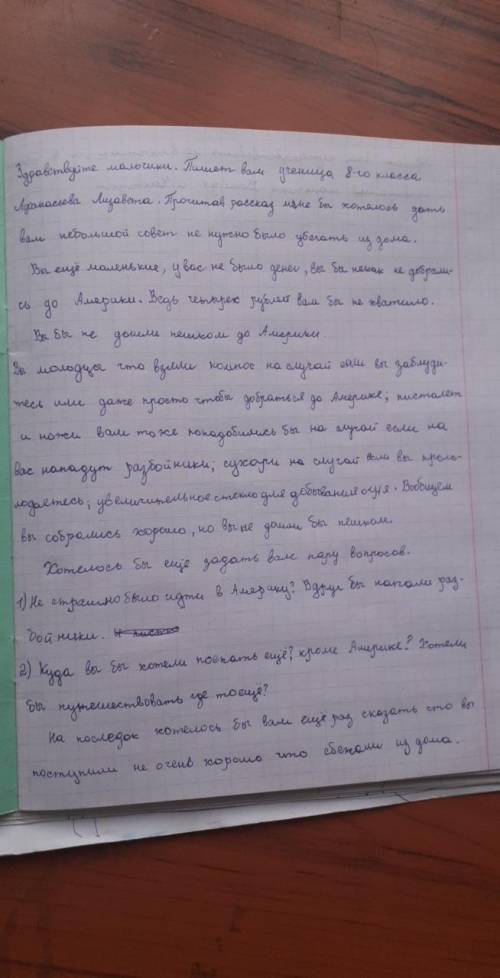 Здравствуйте мальчики. Пишет вам ученица 8-го класса
Афанасьева Лизавета. Прочитав рассказ мне бы хотелось дать
вам небольшой совет не нужно было убегать из дома.
Вы ещё маленькие, у вас не было денег, вы бы никак не добрали-
сь до Америки. Ведь четырех рублей вам бы не хватило.
Вы бы не дошли пешком до Америки.
Вы молодцы что взяли компос на случай если вы заблуди-
тесь или даже просто чтобы добраться до Америке; пистолет
и ножи вам тоже понадобились бы на случай если на
вас нападут разбойники; сухари на случай если вы прого-
лодаетесь; увеличительное стекло для добывания огня. Вообщем
вы собрались хорошо, но вы не дошли бы пешком.
Хотелось бы ещё задать вам пару вопросов.
1) Не страшно было идти в Америку? Вдруг бы напали раз-
бойники.
2) Куда вы бы хотели поехать ещё? кроме Америке? Хотели
бы путешествовать где то ещё?
На последок хотелось бы вам ещё раз сказать что вы
поступили не очень хорошо что сбежали из дома.